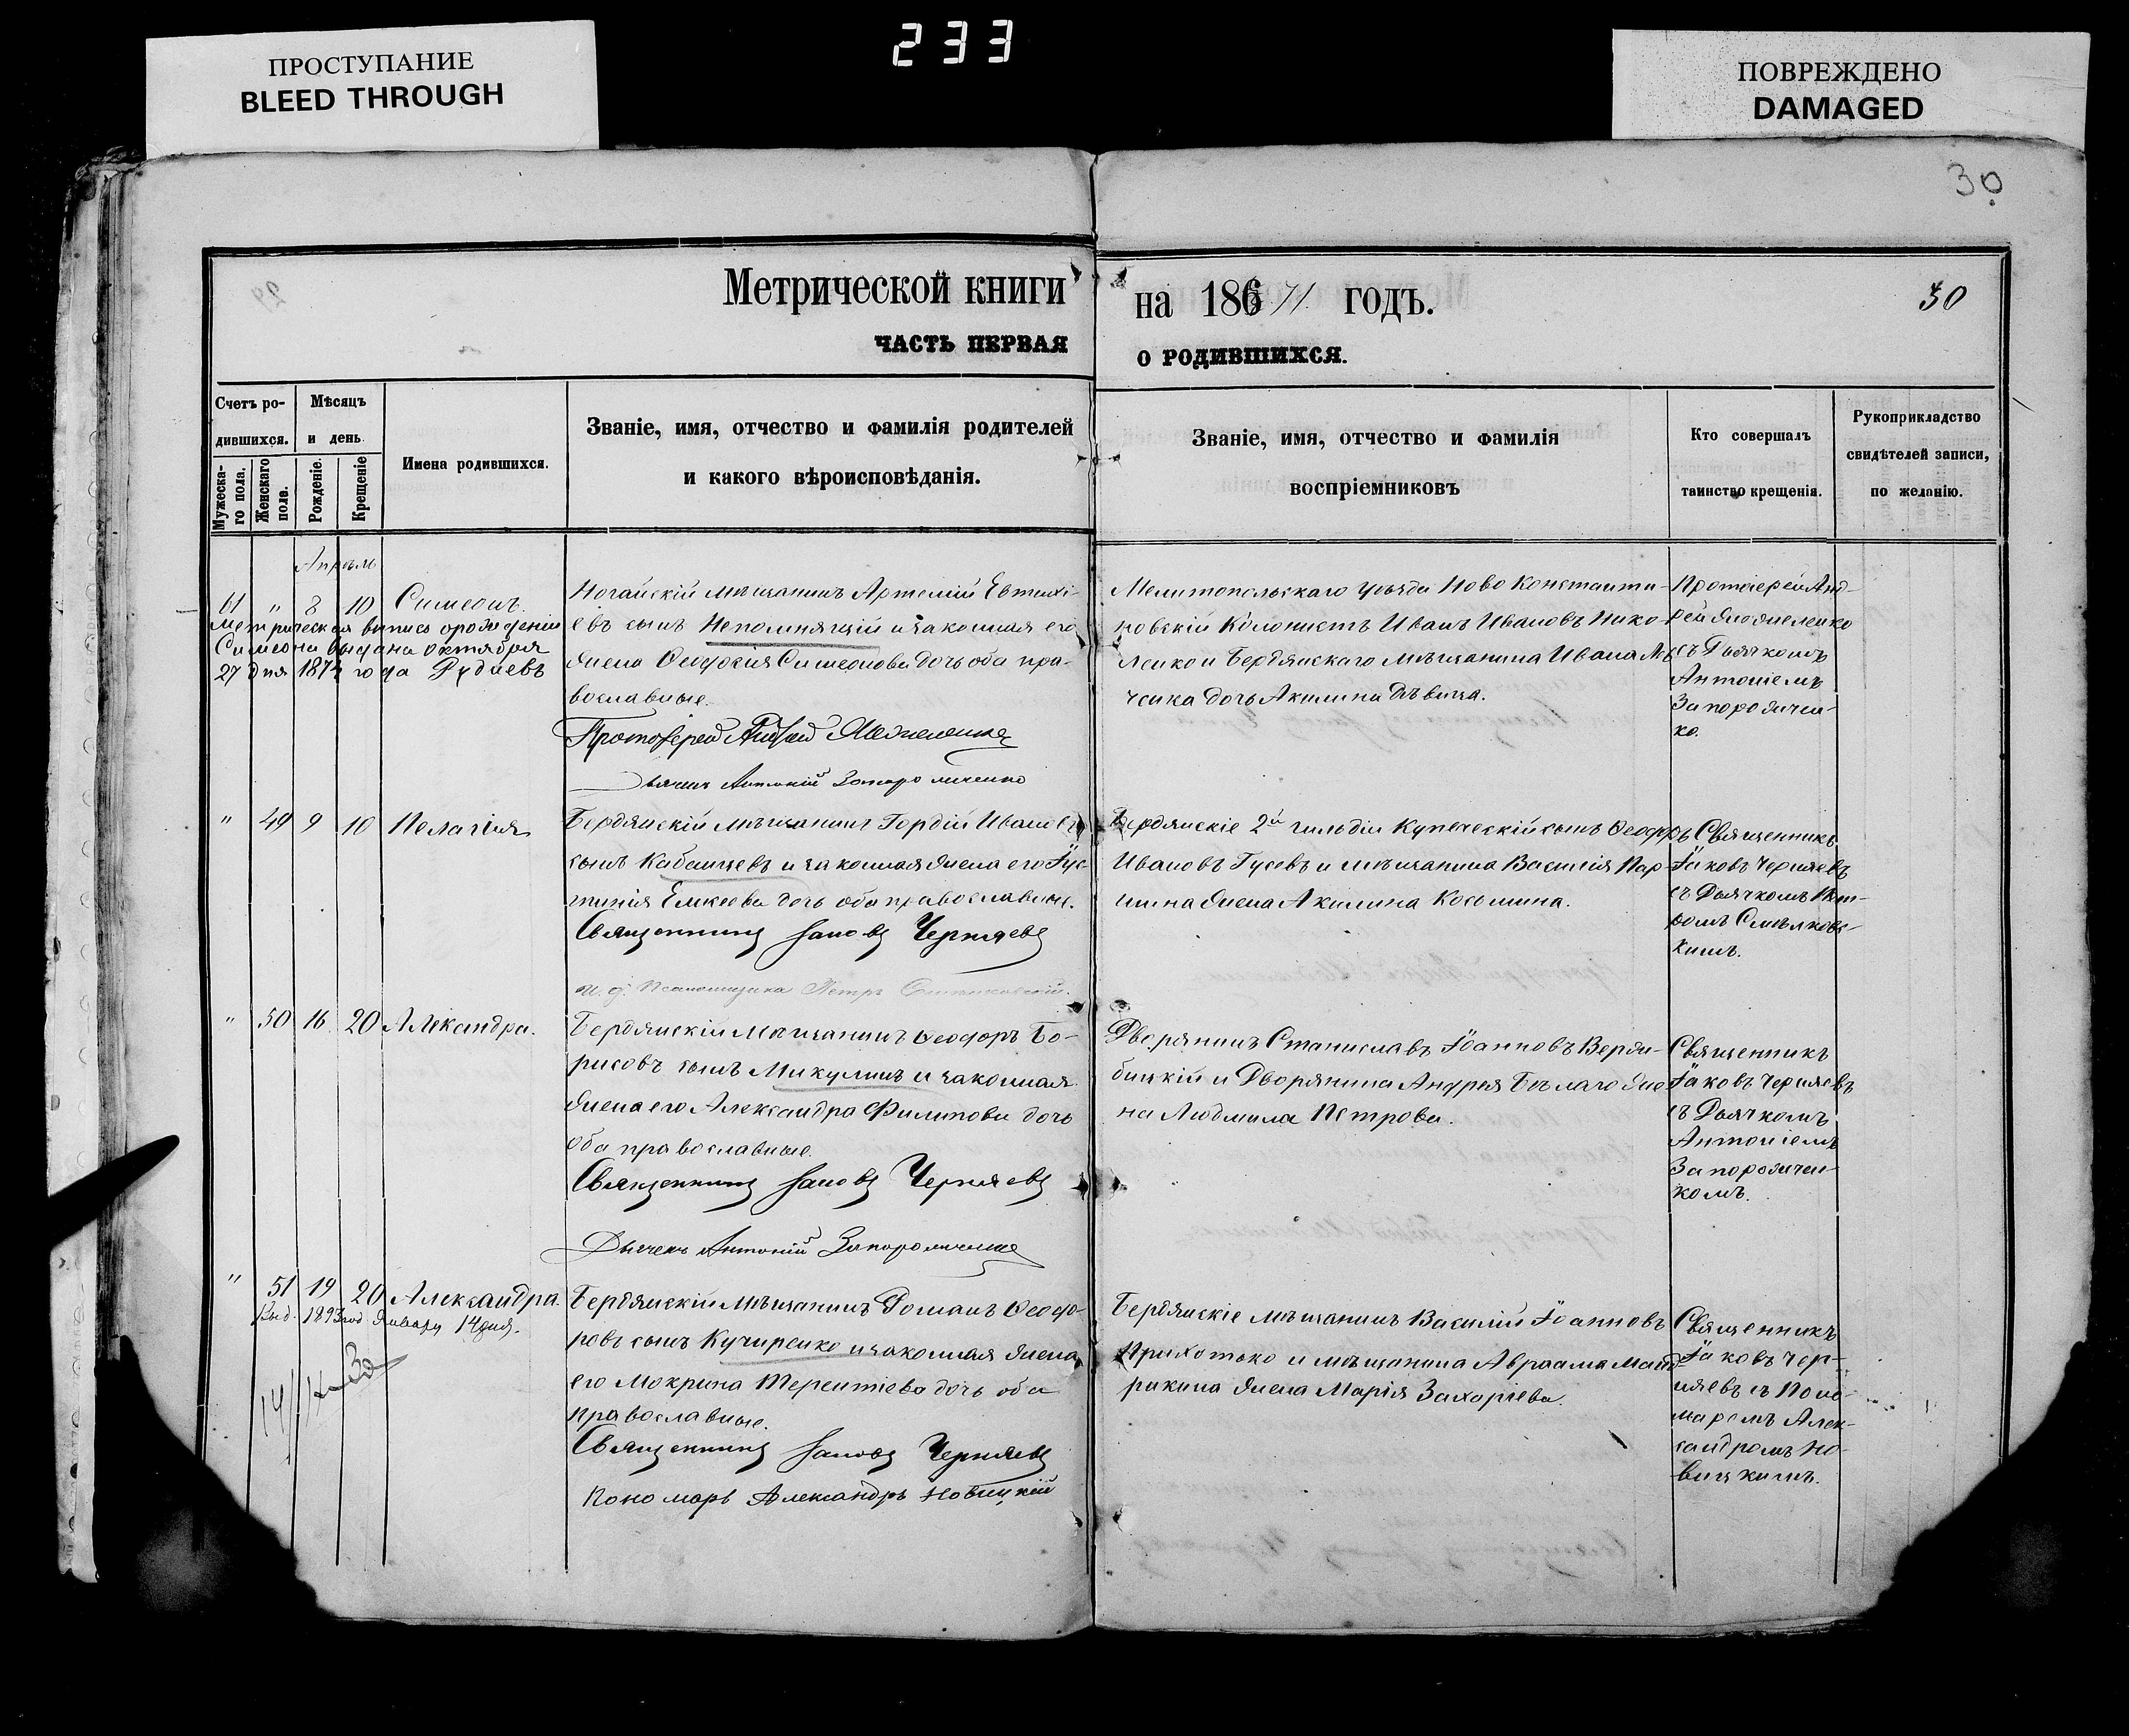 233
ПРОСТУПАНИЕ
BLEED THROUGH
ПОВРЕЖДЕНО
DAMAGED
30
Метрической книги на 186 71 годъ.
30
ЧАСТЬ ПЕРВАЯ о РОДИВШИХСЯ.
Счетъ ро-
дившихся.
Мужеска-
го пола.
Женскаго
пола.
Мѣсяцъ
и день.
Рожденіе.
Крещеніе
Имена родившихся.
Званіе, имя, отчество и фамилія родителей
и какого вѣроисповѣданія.
Званіе, имя, отчество и фамилія
воспріемниковъ
Кто совершалъ
таинство крещенія.
Рукоприкладство
свидѣтелей записи,
по желанію.
Апрѣль
61 " 8 10 Симеонъ.
Метрическая выпись о рождении
Симеона выдана октября
27 дня 187 года Рудневъ
Ногайскій мѣщанинъ Артемій Евтихі-
евъ сынъ Непомнящій и законная его
жена Феодосія Симеонова дочь оба пра-
вославные.
Протоіерей Андрей
Дьячекъ Антоній Запорожченко
Мелитопольскаго уѣзда Ново Константи-
новскій Колонистъ Иванъ Ивановъ Нико-
ленко и Бердянскаго мѣщанина Ивана
дочь Акилина дѣвица.
Протоіерей Анд-
рей
съ Дьячкомъ
Антоніемъ
Запорожчен-
ко.
" 49 9 10 Пелагія
Бердянскій мѣщанинъ Гордій Ивановъ
сынъ Кабанцевъ и законная жена его Іус-
тинія дочь оба православные.
Священникъ Іаковъ Черняевъ
и. д. Псаломщика Петръ
Бердянскіе 2й гильдіи Купеческій сынъ Феодоръ
Ивановъ Гусевъ и мѣщанина Василія Пар-
шина жена Акилина Косьмина.
Священникъ
Іаковъ Черняевъ
съ Дьячкомъ Пет-
ромъ Смѣлковс-
кимъ.
" 50 16 20 Алекандра.
Бердянскій Мѣщанинъ Феодоръ Бо-
рисовъ сынъ Микулинъ и законная
жена его Александра Филипова дочь
оба православные.
Священникъ Іаковъ Черняевъ
Дьячекъ Антоній Запорожченко
Дворянинъ Станиславъ Іоанновъ Верж-
бицкій и Дворянина Андрея Бѣлаго же-
на Людмила Петрова.
Священникъ
Іаковъ Черняевъ
съ Дьячкомъ
Антоніемъ
Запорожчен-
комъ.
" 51 19 20 Александра.
Выд. 1893 год Январи 14 дня.
Бердянскій Мѣщанинъ Романъ Феодо-
ровъ сынъ Кучиренко и законная жена
его Мокрина Терентіева дочь оба
православные.
Священникъ Іаковъ Черняевъ
Пономарь Александръ Новицкій
Бердянскіе мѣщанинъ Василій Іоанновъ
Прихотько и мѣщанина Авраама Манд-
рикина жена Марія Захарьева.
Священникъ
Іаковъ Чер-
няевъ съ Поно-
маремъ Алек-
сандромъ Но-
вицкимъ.